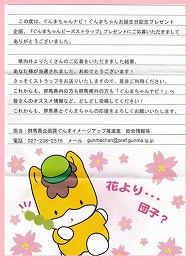 この度は、ぐんまちゃんナビ！ぐんまちゃんお誕生日記念プレゼント
企画、「ぐんまちゃんビーズストラップ」プレゼントにご応募いただきまして
ありがとうございました。
県内外よりたくさんのご応募をいただきました結果、
あなた様が当選されました。おめでとうございます！
さっそくストラップをお送りいたしますので、是非ご利用ください。
これからも、群馬県内の方も群馬県外の方も「ぐんまちゃんナビ！」へ
皆さんのオススメ情報など、どしどし投稿してください！
これからも、群馬県とぐんまちゃんの応援をよろしくお願いいたします。
担当：群馬県企画課ぐんまイメージアップ推進室 総合情報係
電話：027-226-2315 メール：gunmachan@pref.gunma.lg.jp
花より・・・
団子？